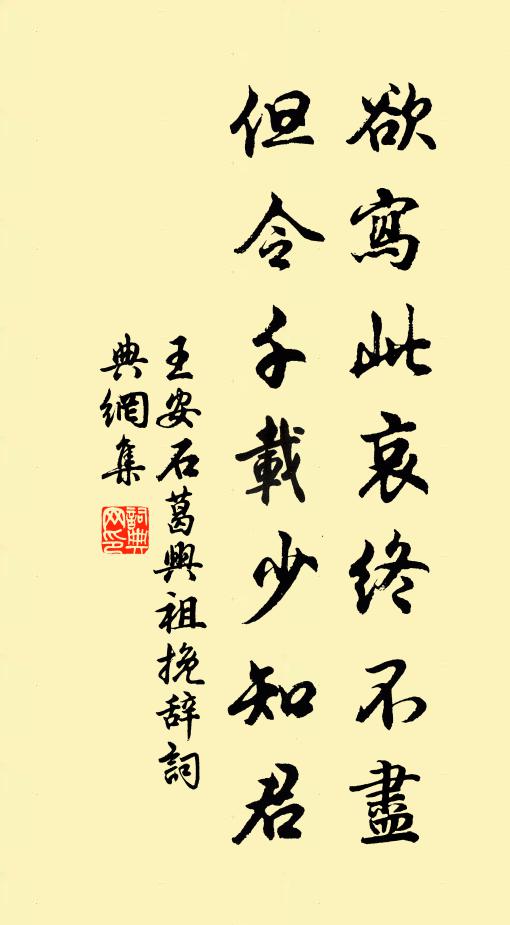 欲寫此哀終不盡
但令千載少知君
王安石葛興祖挽辞詞
典網集
詞典
网印